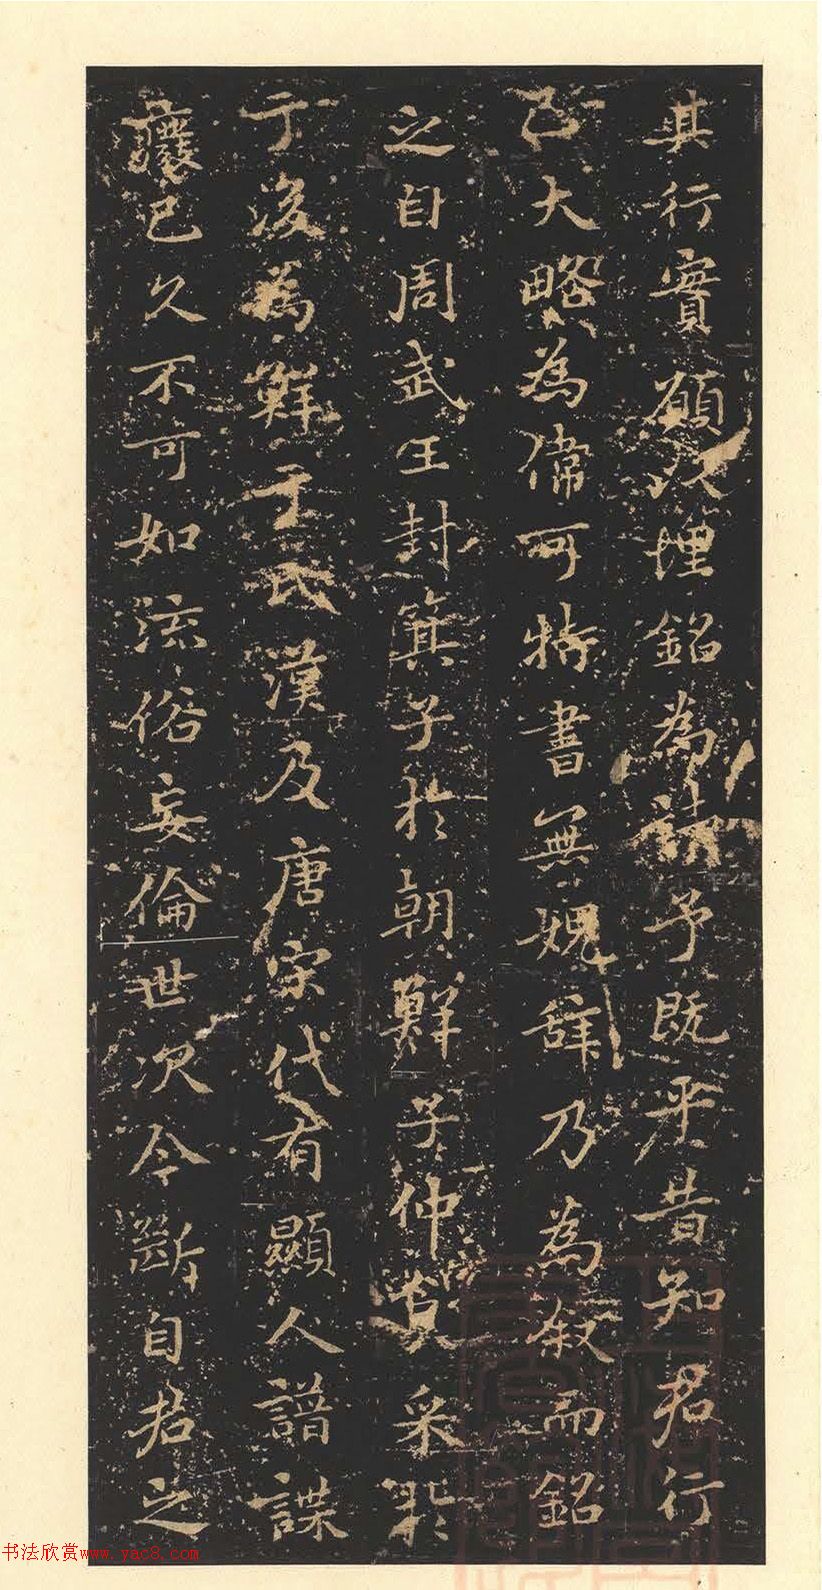 其行實願以埋銘為請予既平昔知君行
已大略為偉可特書無媿辞乃為叙而銘
之自周武王封箕子於朝鮮子仲食采於
于後為鮮于氏漢及唐宋代有顯人譜諜
已久不可如流俗妄倫世次今斷自君之
书法欣赏www.yac8.com